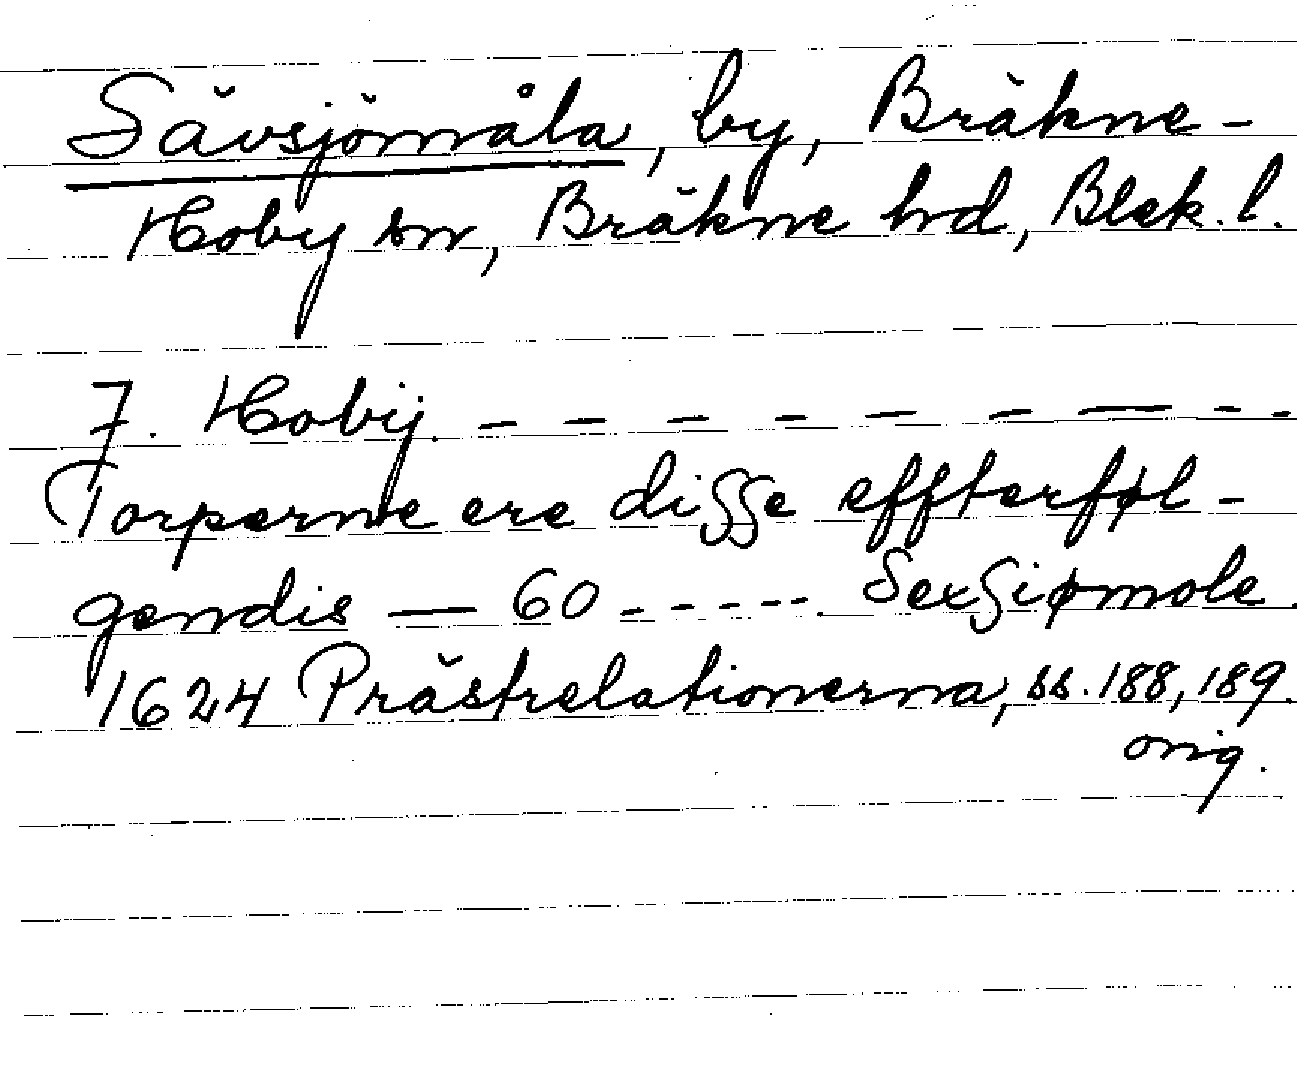 Sävsjömåla, by, Bräkne-
Hoby sn, Bräkne hd, Blek. l.
7. Hobÿ. – – – – – – – – –
Torperne ere diſſe effterføl-
gendis — 60 - - - - - . Sexſiømole.
1624 Prästrelationerna, ss. 188, 189.
orig.